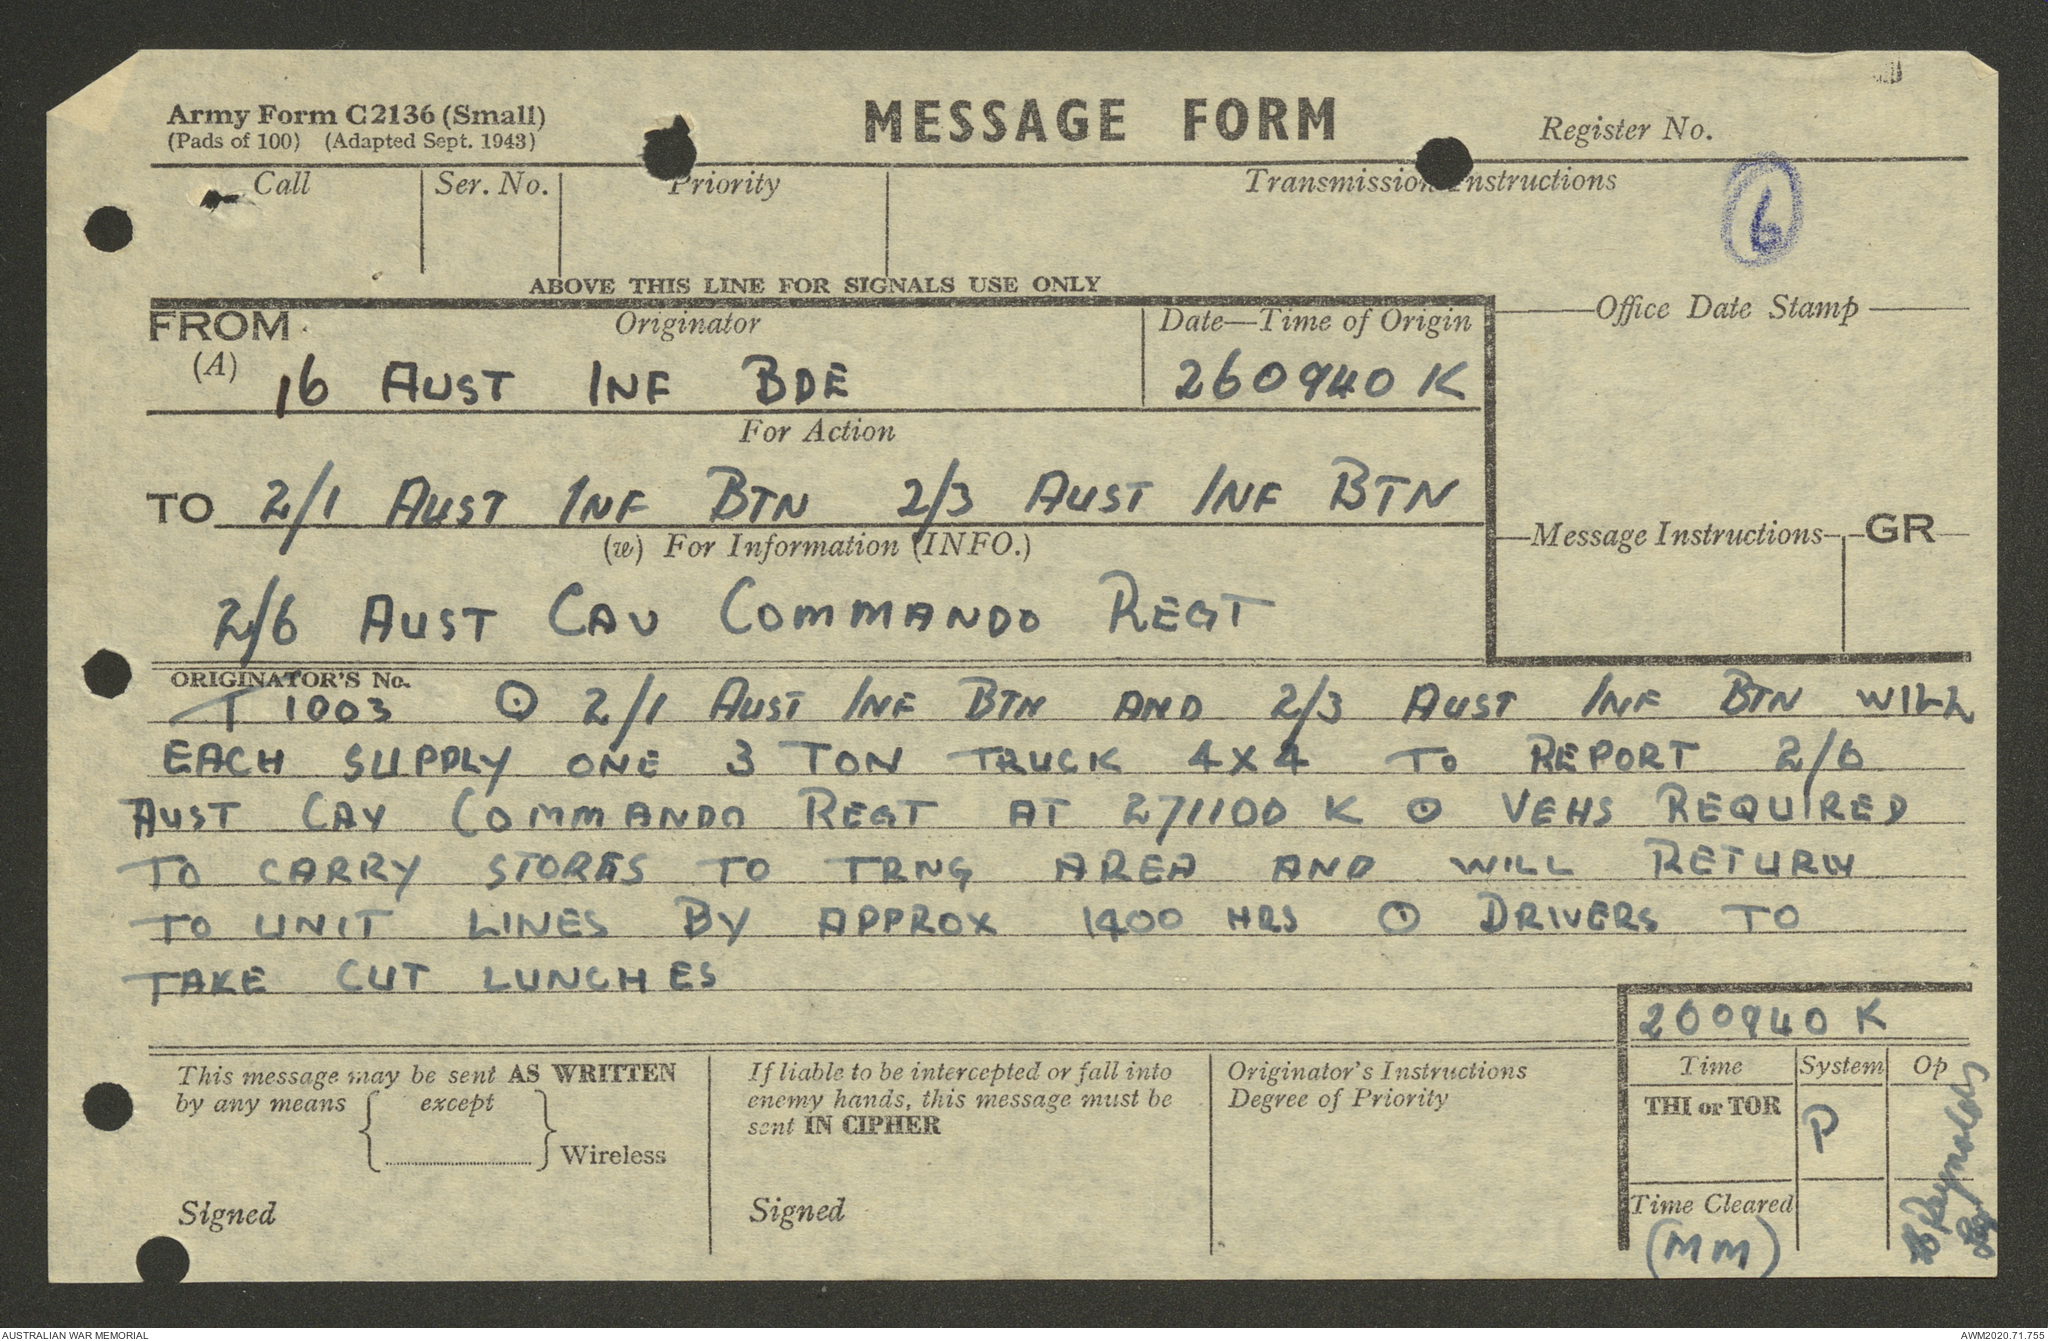 Army Form C2136 (Small)
(Pads of 100) (Adapted Sept. 1943)
MESSAGE FORM
Register No.
Call
Ser. No.
Priority
Transmission Instructions
6
ABOVE THIS LINE FOR SIGNALS USE ONLY
FROM
(A)
Originator
16 AUST INF BDE
Date—Time of Origin
260940 K
Office Date Stamp
For Action
TO 2/1 AUST INF BTN 2/3 AUST INF BTN
(w) For Information (INFO.)
2/6 AUST CAV COMMANDO REGT
Message Instructions
GR
ORIGINATOR'S No.
T 1003 ⊙ 2/1 AUST INF BTN AND 2/3 AUST INF BTN WILL
EACH SUPPLY ONE 3 TON TRUCK 4X4 TO REPORT 2/6
AUST CAV COMMANDO REGT AT 271100 K ⊙ VEHS REQUIRED
TO CARRY STORES TO TRNG AREA AND WILL RETURN
TO UNIT LINES BY APPROX 1400 HRS ⊙ DRIVERS TO
TAKE CUT LUNCHES
260940 K
This message may be sent AS WRITTEN
by any means { except
} Wireless
Signed
If liable to be intercepted or fall into
enemy hands, this message must be
sent IN CIPHER
Signed
Originator's Instructions
Degree of Priority
Time
System
Op
THI or TOR
P
Time Cleared
(MM)
Reynolds
AUSTRALIAN WAR MEMORIAL
AWM2020.71.755